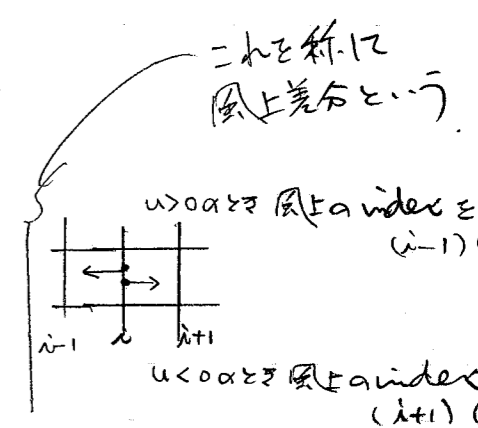 これを称して
風上差分という.
u>0のとき 風上のindexを
(i-1)(
i-1 i i+1
u<0のとき 風上のindex
(i+1)(